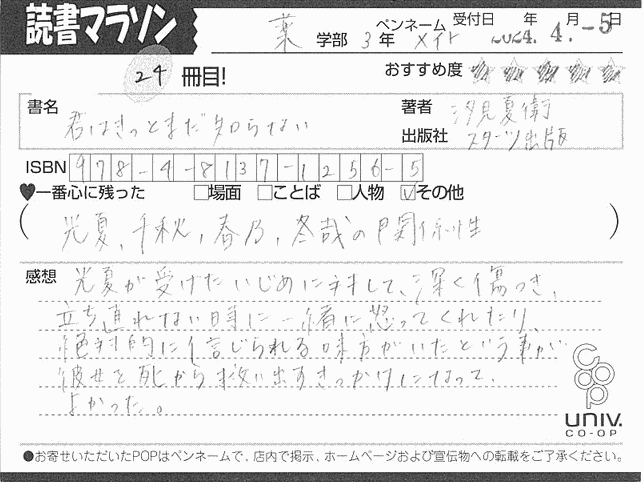 読書マラソン
薬 学部 3年 ペンネーム メイト 受付日 年 月 日
2024. 4. -5
24 冊目!
おすすめ度 ★★★★★
書名 君はきっとまだ知らない
著者 汐見夏衛
出版社 スターツ出版
ISBN 978-4-8137-1256-5
♥一番心に残った □場面 □ことば □人物 ☑その他
(光夏、千秋、春乃、冬哉の関係性)
感想 光夏が受けたいじめに対して、深く傷つき、
立ち直れない時に一緒に怒ってくれたり、
絶対的に信じられる味方がいたという事が
彼女を死から救い出すきっかけになって、
よかった。
coop
UNIV.
CO-OP
●お寄せいただいたPOPはペンネームで、店内で掲示、ホームページおよび宣伝物への転載をご了承ください。